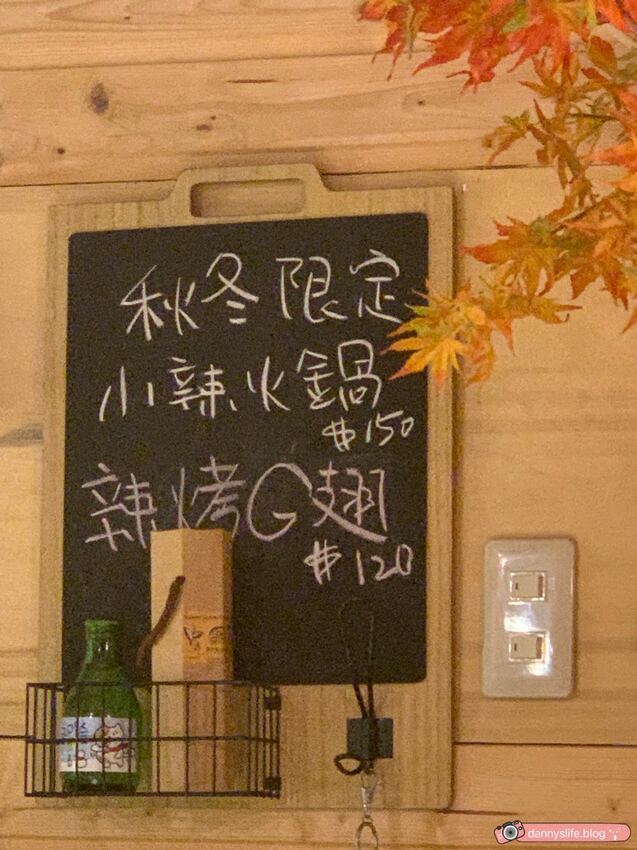 秋冬限定
小辣火鍋
$150
辣烤G翅
$120
dannyslife.blog